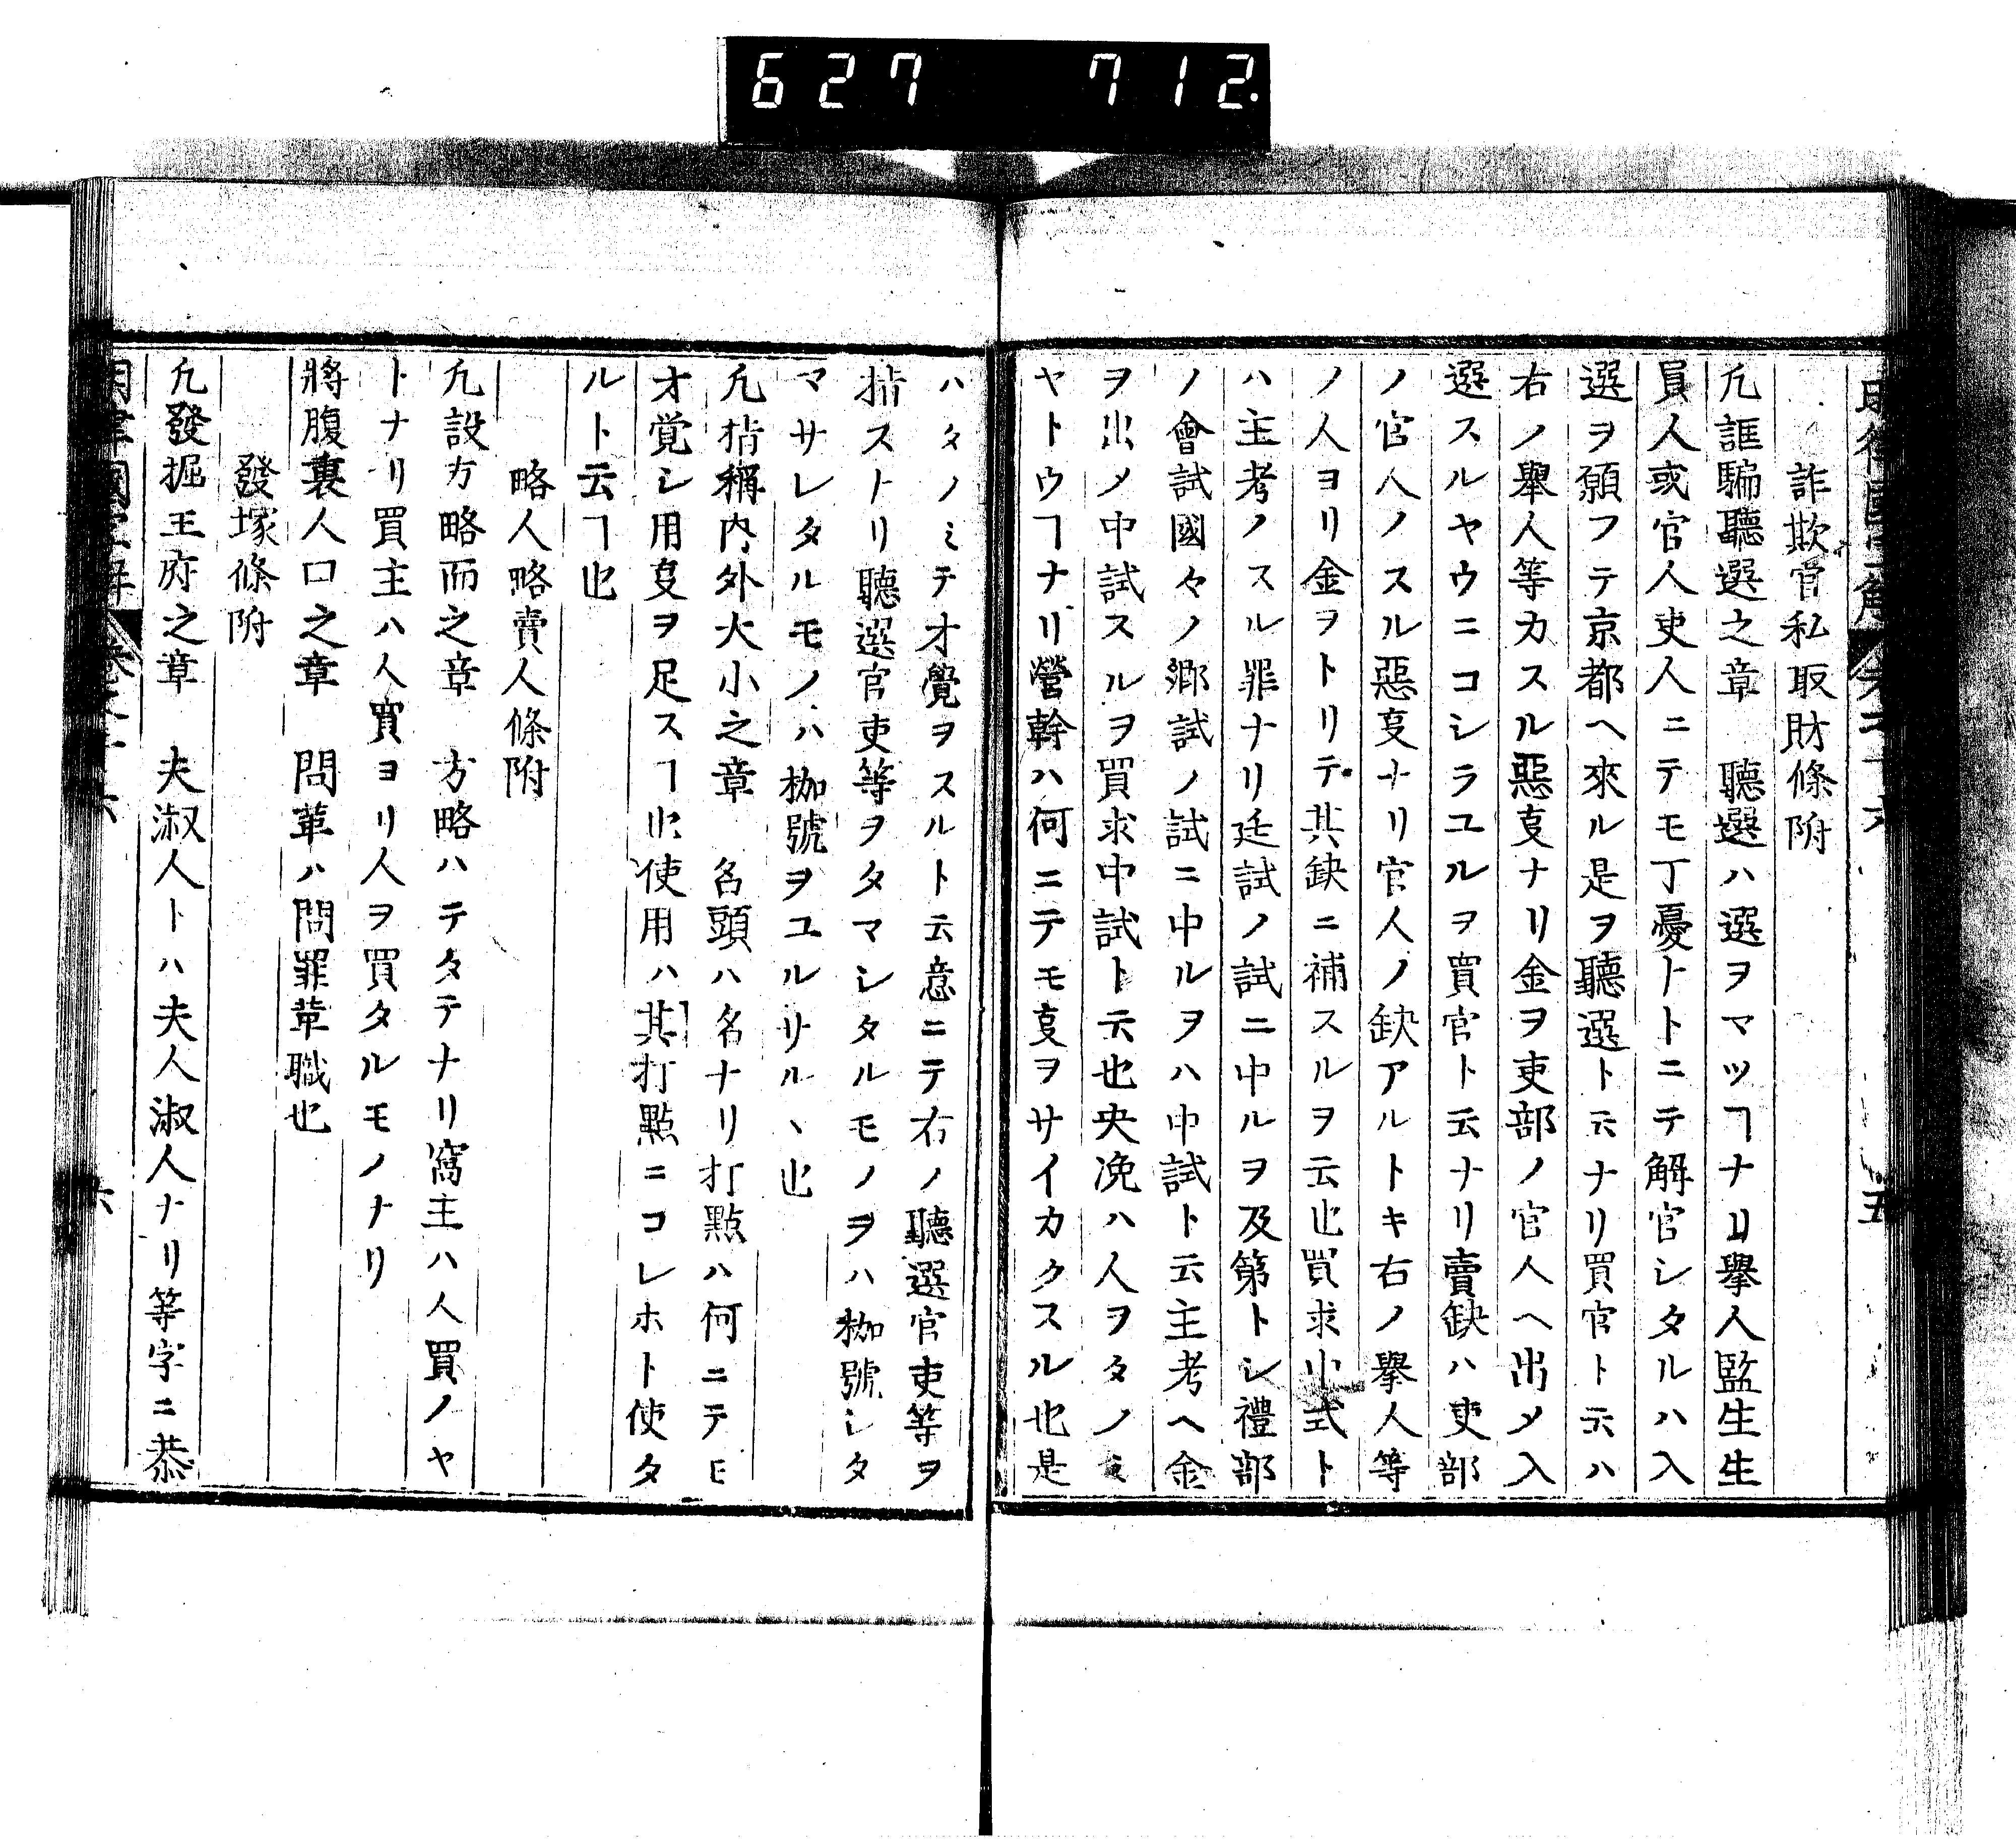 627 712
詐欺官私取財條附
凢誆騙聽選之章　聽選ハ選ヲマツヿナリ擧人監生生
員人或官人吏人ニテモ丁憂トトニテ解官シタルハ入
選ヲ願フテ京都ヘ來ル是ヲ聽選ト云ナリ買官ト云ハ
右ノ擧人等カスル惡㕝ナリ金ヲ吏部ノ官人ヘ出メ入
選スルヤウニコシラユルヲ買官ト云ナリ賣缺ハ吏部
ノ官人ノスル惡㕝ナリ官人ノ缺アルトキ右ノ擧人等
ノ人ヨリ金ヲトリテ其缺ニ補スルヲ云也買求中式ト
ハ主考ノスル罪ナリ廷試ノ試ニ中ルヲ及第トシ禮部
ノ會試國々ノ郷試ノ試ニ中ルヲハ中試ト云主考ヘ金
ヲ出メ中試スルヲ買求中試ト云也央浼ハ人ヲタノミ
ヤトウヿナリ營幹ハ何ニテモ㕝ヲサイカクスル也是
ハタノミテ才覺ヲスルト云意ニテ右ノ聽選官吏等ヲ
指ストリ聽選官吏等ヲタマシタルモノヲハ枷號シタ
マサレタルモノハ枷號ヲユルサル丶也
凢指稱内外大小之章　名頭ハ名ナリ打點ハ何ニテモ
才覚シ用㕝ヲ足スヿ也使用ハ其打點ニコレホト使タ
ルト云ヿ也
略人略賣人條附
凢設方略而之章　方略ハテタテナリ窩主ハ人買ノヤ
トナリ買主ハ人買ヨリ人ヲ買タルモノナリ
將腹裏人口之章　問革ハ問罪革職也
發塚條附
凢發掘王府之章　夫淑人トハ夫人淑人ナリ等字ニ恭